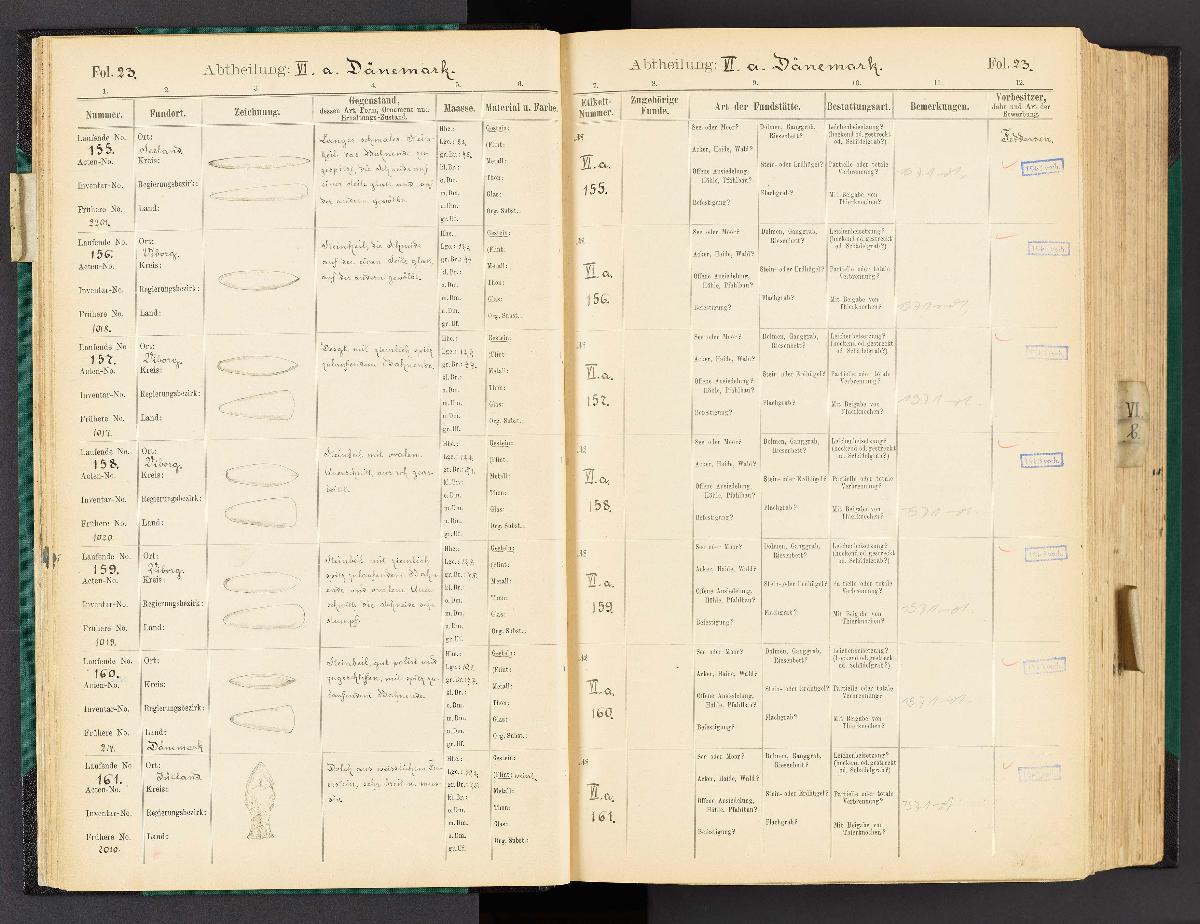 Fol. 23.
Abtheilung: VI. a. Dänemark.
1.
2.
3.
4.
5.
6.
Nummer.
Fundort.
Zeichnung.
Gegenstand,
dessen Art, Form, Ornament und
Erhaltungs-Zustand.
Maasse.
Material u. Farbe.
Laufende No.
155.
Acten-No.
Inventar-No.
Frühere No.
2201.
Ort:
Seeland
Kreis:
Regierungsbezirk:
Land:
Langes schmales
der andern gewölbt.
Hhe.:
Lge.:
gr. Br.:
kl. Br.:
o. Dm.
m. Dm.
u. Dm.
gr. Uf.
Gestein:
(Flint:
Metall:
Thon:
Glas:
Org. Subst.:
Laufende No.
156.
Acten-No.
Inventar-No.
Frühere No.
1018.
Ort:
Viborg.
Kreis:
Regierungsbezirk:
Land:
Steinkeil, die Schneide
auf der einen Seite glatt,
auf der andern gewölbt.
Hhe.:
Lge.:
gr. Br.:
kl. Br.:
o. Dm.
m. Dm.
u. Dm.
gr. Uf.
Gestein:
(Flint:
Metall:
Thon:
Glas:
Org. Subst.:
Laufende No.
157.
Acten-No.
Inventar-No.
Frühere No.
1017.
Ort:
Viborg.
Kreis:
Regierungsbezirk:
Land:
Desgl. mit ziemlich spitz
zulaufendem Bahnende.
Hhe.:
Lge.:
gr. Br.:
kl. Br.:
o. Dm.
m. Dm.
u. Dm.
gr. Uf.
Gestein:
(Flint:
Metall:
Thon:
Glas:
Org. Subst.:
Laufende No.
158.
Acten-No.
Inventar-No.
Frühere No.
1020.
Ort:
Viborg.
Kreis:
Regierungsbezirk:
Land:
Steinkeil mit ovalem
Querschnitt, nur roh gear-
beitet.
Hhe.:
Lge.:
gr. Br.:
kl. Br.:
o. Dm.
m. Dm.
u. Dm.
gr. Uf.
Gestein:
(Flint:
Metall:
Thon:
Glas:
Org. Subst.:
Laufende No.
159.
Acten-No.
Inventar-No.
Frühere No.
1019.
Ort:
Viborg.
Kreis:
Regierungsbezirk:
Land:
Steinbeil mit ziemlich
spitz zulaufendem Bahn-
ende und ovalem Quer-
schnitt die Schneide sehr
stumpf.
Hhe.:
Lge.:
gr. Br.:
kl. Br.:
o. Dm.
m. Dm.
u. Dm.
gr. Uf.
Gestein:
(Flint:
Metall:
Thon:
Glas:
Org. Subst.:
Laufende No.
160.
Acten-No.
Inventar-No.
Frühere No.
Ort:
Kreis:
Regierungsbezirk:
Land:
Dänemark
Steinbeil, gut polirt und
zugeschliffen, mit spitz zu-
laufendem Bahnende.
Hhe.:
Lge.:
gr. Br.:
kl. Br.:
o. Dm.
m. Dm.
u. Dm.
gr. Uf.
Gestein:
(Flint:
Metall:
Thon:
Glas:
Org. Subst.:
Laufende No.
161.
Acten-No.
Inventar-No.
Frühere No.
2010.
Ort:
Jütland
Kreis:
Regierungsbezirk:
Land:
Dolch aus weisslichem Feu-
erstein, sehr breit u. mas-
siv.
Hhe.:
Lge.:
gr. Br.:
kl. Br.:
o. Dm.
m. Dm.
u. Dm.
gr. Uf.
Gestein:
(Flint:
Metall:
Thon:
Glas:
Org. Subst.:
Abtheilung: VI. a. Dänemark.
Fol. 23.
7.
8.
9.
10.
11.
12.
Etikett-
Nummer.
Zugehörige
Funde.
Art der Fundstätte.
Bestattungsart.
Bemerkungen.
Vorbesitzer,
Jahr und Art der
Erwerbung.
VI. a.
155.
See oder Moor?
Acker, Haide, Wald?
Offene Ansiedelung,
Höhle, Pfahlbau?
Befestigung?
Dolmen, Ganggrab,
Riesenbett?
Stein- oder Erdhügel?
Flachgrab?
Leichenbeisetzung?
(hockend od. gestreckt
od. Schädelgrab?)
Partielle oder totale
Verbrennung?
Mit Beigabe von
Thierknochen?
Feddersen.
VI. a.
156.
See oder Moor?
Acker, Haide, Wald?
Offene Ansiedelung,
Höhle, Pfahlbau?
Befestigung?
Dolmen, Ganggrab,
Riesenbett?
Stein- oder Erdhügel?
Flachgrab?
Leichenbeisetzung?
(hockend od. gestreckt
od. Schädelgrab?)
Partielle oder totale
Verbrennung?
Mit Beigabe von
Thierknochen?
VI. a.
157.
See oder Moor?
Acker, Haide, Wald?
Offene Ansiedelung?
Höhle, Pfahlbau?
Befestigung?
Dolmen, Ganggrab,
Riesenbett?
Stein- oder Erdhügel?
Flachgrab?
Leichenbeisetzung?
(hockend od. gestreckt
od. Schädelgrab?)
Partielle oder totale
Verbrennung?
Mit Beigabe von
Thierknochen?
VI. a.
158.
See oder Moor?
Acker, Haide, Wald?
Offene Ansiedelung,
Höhle, Pfahlbau?
Befestigung?
Dolmen, Ganggrab,
Riesenbett?
Stein- oder Erdhügel?
Flachgrab?
Leichenbeisetzung?
(hockend od. gestreckt
od. Schädelgrab?)
Partielle oder totale
Verbrennung?
Mit Beigabe von
Thierknochen?
VI. a.
159.
See oder Moor?
Acker, Haide, Wald?
Offene Ansiedelung,
Höhle, Pfahlbau?
Befestigung?
Dolmen, Ganggrab,
Riesenbett?
Stein- oder Erdhügel?
Flachgrab?
Leichenbeisetzung?
(hockend od. gestreckt
od. Schädelgrab?)
Partielle oder totale
Verbrennung?
Mit Beigabe von
Thierknochen?
VI. a.
160.
See oder Moor?
Acker, Haide, Wald?
Offene Ansiedelung,
Höhle, Pfahlbau?
Befestigung?
Dolmen, Ganggrab,
Riesenbett?
Stein- oder Erdhügel?
Flachgrab?
Leichenbeisetzung?
(hockend od. gestreckt
od. Schädelgrab?)
Partielle oder totale
Verbrennung?
Mit Beigabe von
Thierknochen?
VI. a.
161.
See oder Moor?
Acker, Haide, Wald?
Offene Ansiedelung,
Höhle, Pfahlbau?
Befestigung?
Dolmen, Ganggrab,
Riesenbett?
Stein- oder Erdhügel?
Flachgrab?
Leichenbeisetzung?
(hockend od. gestreckt
od. Schädelgrab?)
Partielle oder totale
Verbrennung?
Mit Beigabe von
Thierknochen?
VI.
b.